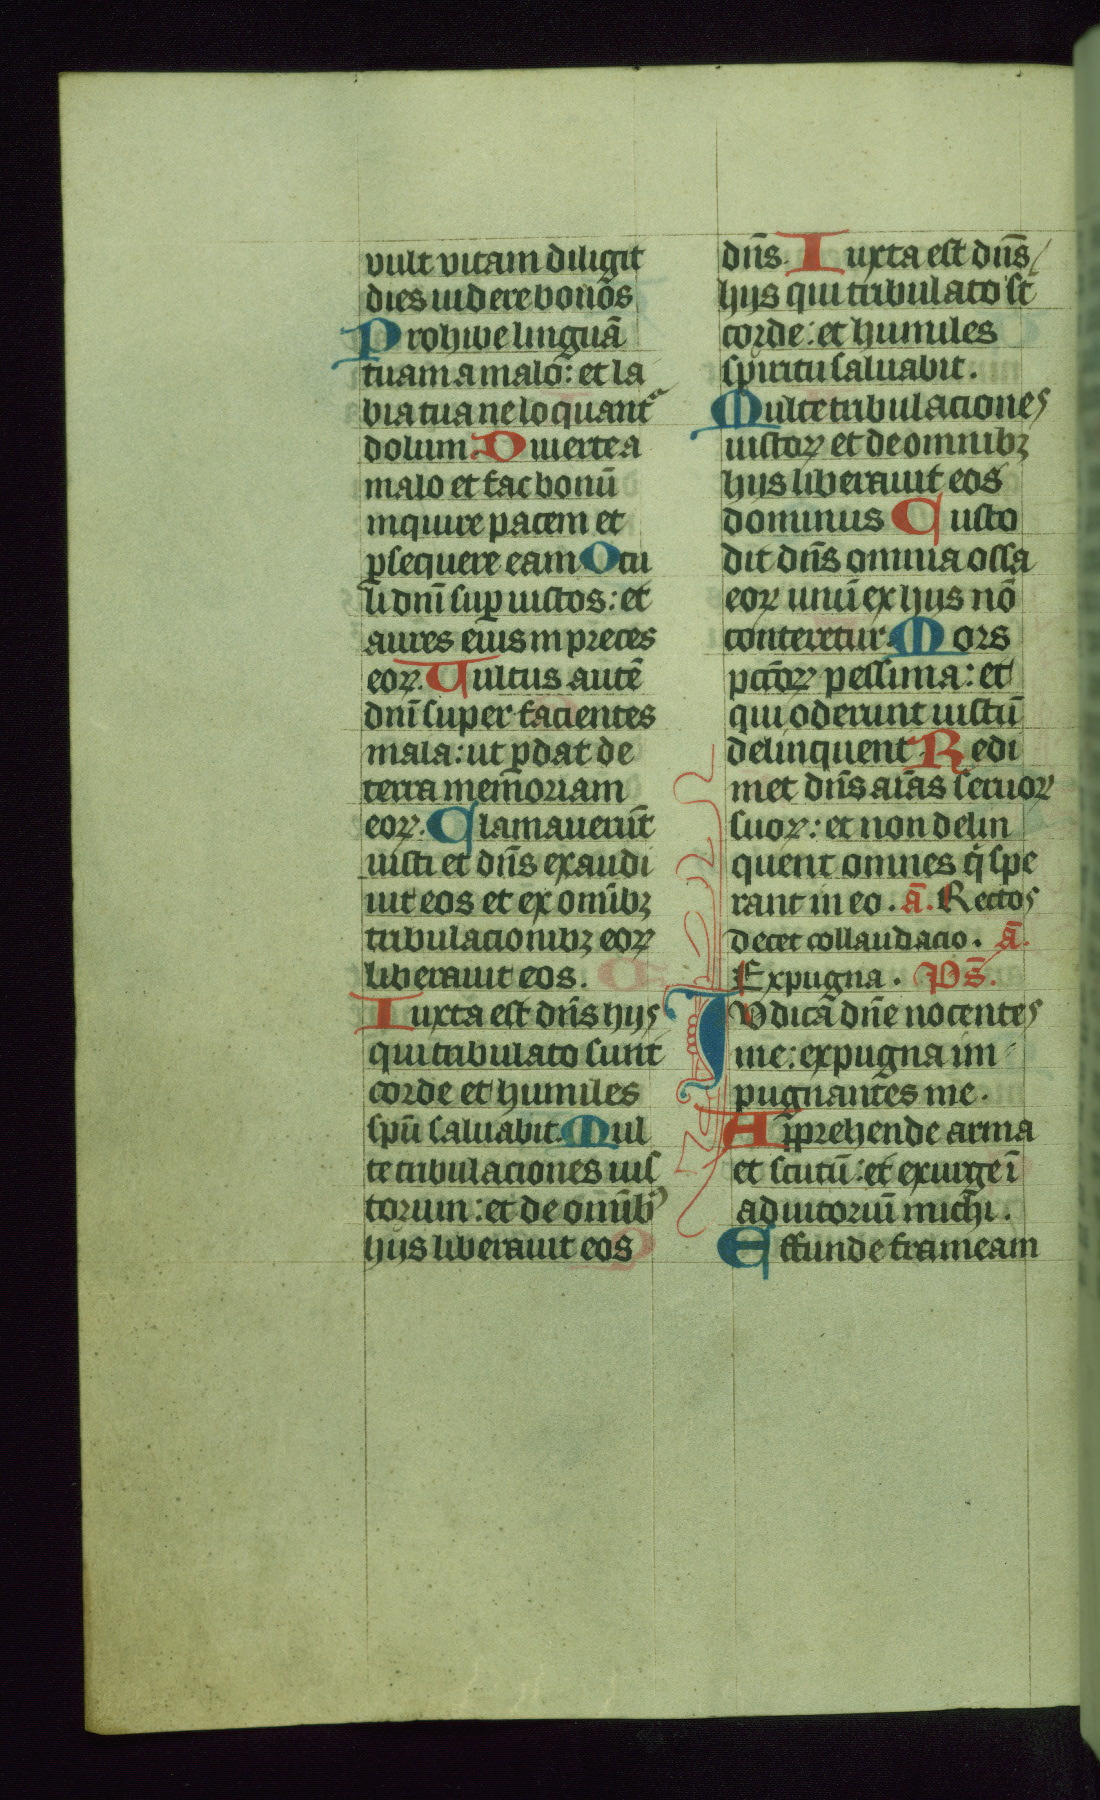 vult vitam diligit
dies uidere bonos
Prohibe linguā
tuam a malo: et la
bia tua ne loquant᷑
dolum. Diuerte a
malo et fac bonū
inquire pacem et
ꝑsequere eam Ocu
li dn̄i suꝑ iustos: et
aures eius in preces
eoꝝ. Uultus autē
dn̄i super facientes
mala: ut ꝑdat de
terra memoriam
eoꝝ. Clamauerūt
iusti et dn̄s exaudi
uit eos et ex om̄ibꝫ
tribulacionibꝫ eoꝝ
liberauit eos.
Iuxta est dn̄s hijs
qui tribulato sunt
corde et humiles
spū saluabit. Mul
te tribulaciones ius
torum: et de om̄ib᷒
hijs liberauit eos
dn̄s. Iuxta est dn̄s
hijs qui tribulato st̄
corde: et humiles
spiritu saluabit.
Multe tribulaciones
iustoꝝ et de omnibꝫ
hijs liberauit eos
dominus Custo
dit dn̄s omnia ossa
eoꝝ unū ex hijs nō
conteretur. Mors
pct̄oꝝ pessima: et
qui oderunt iustū
delinquent Redi
met dn̄s aīas seruoꝝ
suoꝝ: et non delin
quent omnes q̄ spe
rant in eo. ā. Rectos
decet collaudacio. ā.
Expugna. Ps̄.
Iudica dn̄e nocentes
me: expugna im
pugnantes me.
Apprehende arma
et scutū: et exurge ī
adiutoriū michi.
Effunde frameam